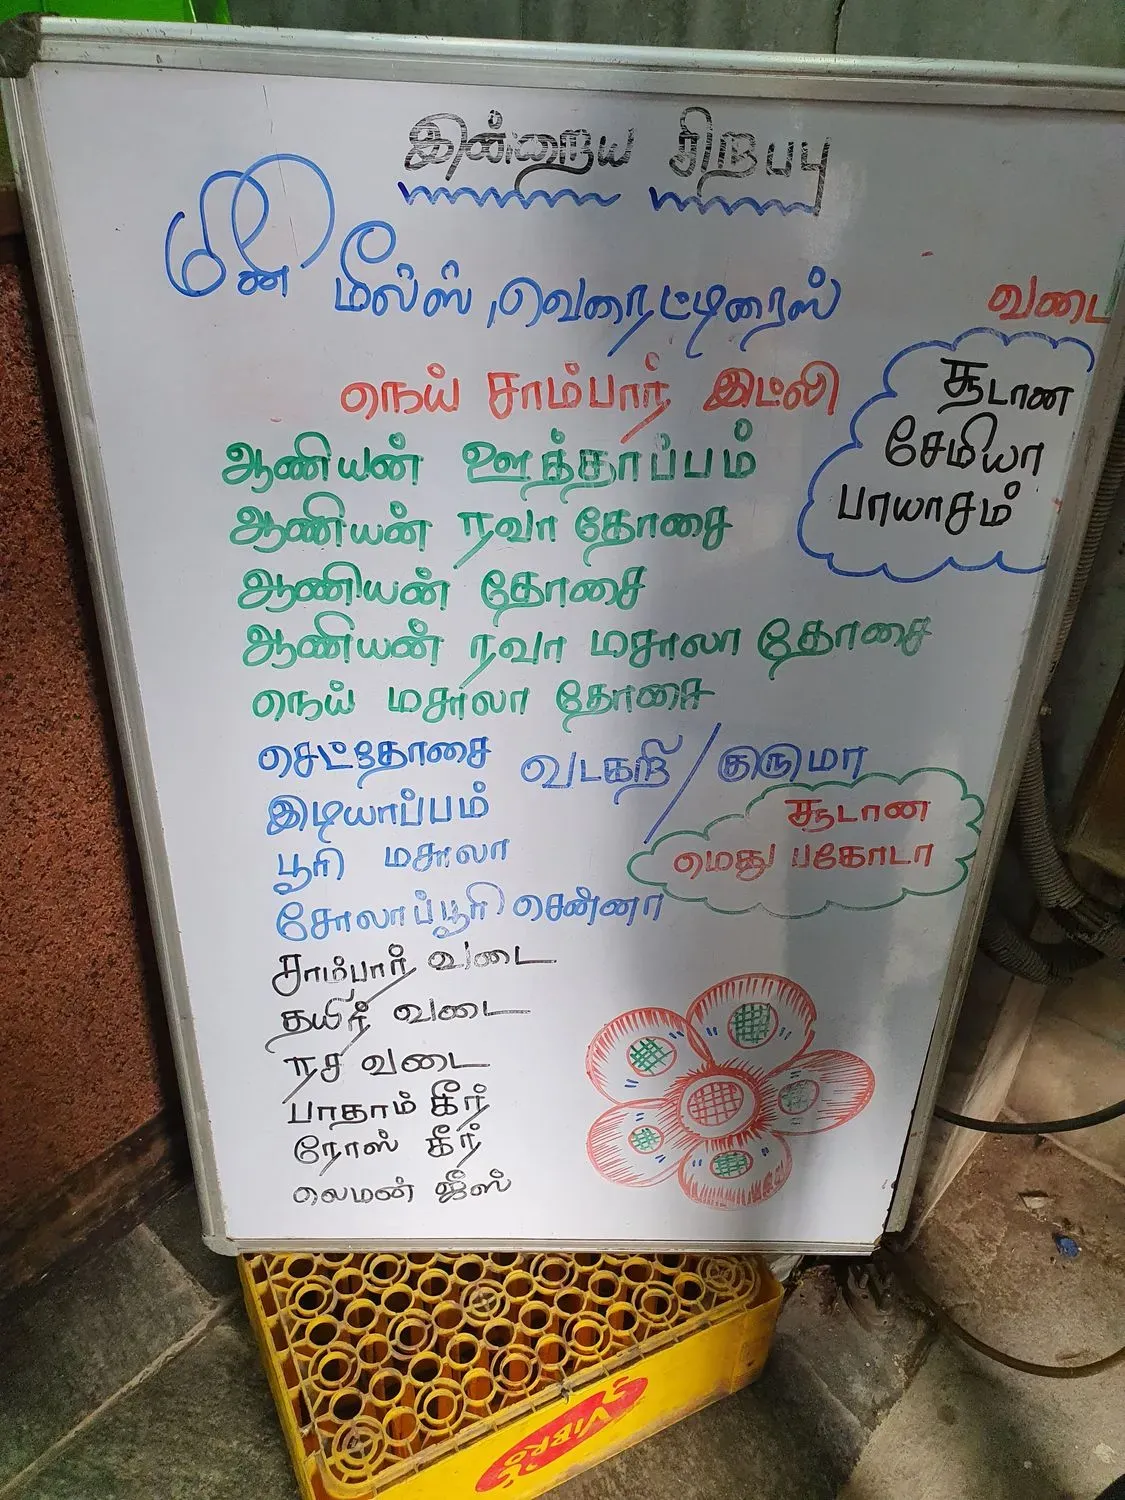 இன்றைய சிறப்பு
மினி மீல்ஸ், வெரைட்டிரைஸ்
வடை
நெய் சாம்பார் இட்லி
சூடான
சேமியா
பாயாசம்
ஆனியன் ஊத்தாப்பம்
ஆனியன் ரவா தோசை
ஆனியன் தோசை
ஆனியன் ரவா மசாலா தோசை
நெய் மசாலா தோசை
செட்தோசை வடகறி / குருமா
இடியாப்பம்
சூடான
மெது பகோடா
பூரி மசாலா
சோலாப்பூரி சென்னா
சாம்பார் வடை
தயிர் வடை
ரச வடை
பாதாம் கீர்
ரோஸ் கீர்
லெமன் ஜீஸ்
ViBRO